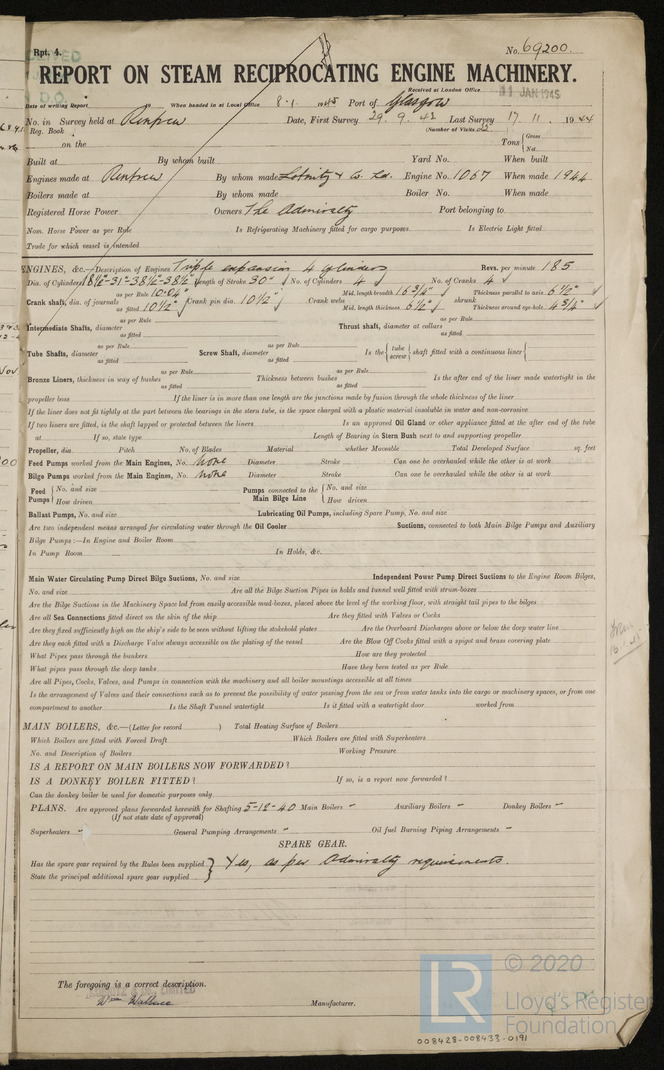 Rpt. 4.
No. 69200.
REPORT ON STEAM RECIPROCATING ENGINE MACHINERY.
Received at London Office 11 JAN 1945
Date of writing Report 19 When handed in at Local Office 8.1. 1945 Port of Glasgow
No. in Survey held at Renfrew Date, First Survey 29.9.42 Last Survey 17.11. 1944
Reg. Book (Number of Visits
on the Tons { Gross
Net
Built at By whom built Yard No. When built
Engines made at Renfrew By whom made Lobnitz & Co. Ld. Engine No. 1067 When made 1944
Boilers made at By whom made Boiler No. When made
Registered Horse Power Owners The Admiralty Port belonging to
Nom. Horse Power as per Rule Is Refrigerating Machinery fitted for cargo purposes Is Electric Light fitted
Trade for which vessel is intended
ENGINES, &c.—Description of Engines Triple expansion 4 cylinders Revs. per minute 185
Dia. of Cylinders 18½"-31"-38½"-38½" Length of Stroke 30" No. of Cylinders 4 No. of Cranks 4
Crank shaft, dia. of journals as per Rule 10.04" as fitted 10½" Crank pin dia. 10½" Crank webs Mid. length breadth 16¾" Mid. length thickness 6½" shrunk Thickness parallel to axis 6½" Thickness around eye-hole 4¾"
Intermediate Shafts, diameter as per Rule as fitted Thrust shaft, diameter at collars as per Rule as fitted
Tube Shafts, diameter as per Rule as fitted Screw Shaft, diameter as per Rule as fitted Is the { tube screw } shaft fitted with a continuous liner {
Bronze Liners, thickness in way of bushes as per Rule as fitted Thickness between bushes as per Rule as fitted Is the after end of the liner made watertight in the
propeller boss If the liner is in more than one length are the junctions made by fusion through the whole thickness of the liner
If the liner does not fit tightly at the part between the bearings in the stern tube, is the space charged with a plastic material insoluble in water and non-corrosive
If two liners are fitted, is the shaft lapped or protected between the liners Is an approved Oil Gland or other appliance fitted at the after end of the tube
at If so, state type Length of Bearing in Stern Bush next to and supporting propeller
Propeller, dia. Pitch No. of Blades Material whether Moveable Total Developed Surface sq. feet
Feed Pumps worked from the Main Engines, No. None Diameter Stroke Can one be overhauled while the other is at work
Bilge Pumps worked from the Main Engines, No. None Diameter Stroke Can one be overhauled while the other is at work
Feed Pumps { No. and size How driven Pumps connected to the Main Bilge Line { No. and size How driven
Ballast Pumps, No. and size Lubricating Oil Pumps, including Spare Pump, No. and size
Are two independent means arranged for circulating water through the Oil Cooler Suctions, connected to both Main Bilge Pumps and Auxiliary
Bilge Pumps :—In Engine and Boiler Room
In Pump Room In Holds, &c.
Main Water Circulating Pump Direct Bilge Suctions, No. and size Independent Power Pump Direct Suctions to the Engine Room Bilges,
No. and size Are all the Bilge Suction Pipes in holds and tunnel well fitted with strum-boxes
Are the Bilge Suctions in the Machinery Space led from easily accessible mud-boxes, placed above the level of the working floor, with straight tail pipes to the bilges
Are all Sea Connections fitted direct on the skin of the ship Are they fitted with Valves or Cocks
Are they fixed sufficiently high on the ship's side to be seen without lifting the stokehold plates Are the Overboard Discharges above or below the deep water line
Are they each fitted with a Discharge Valve always accessible on the plating of the vessel Are the Blow Off Cocks fitted with a spigot and brass covering plate
What Pipes pass through the bunkers How are they protected
What pipes pass through the deep tanks Have they been tested as per Rule
Are all Pipes, Cocks, Valves, and Pumps in connection with the machinery and all boiler mountings accessible at all times
Is the arrangement of Valves and their connections such as to prevent the possibility of water passing from the sea or from water tanks into the cargo or machinery spaces, or from one
compartment to another Is the Shaft Tunnel watertight Is it fitted with a watertight door worked from
MAIN BOILERS, &c.—(Letter for record ) Total Heating Surface of Boilers
Which Boilers are fitted with Forced Draft Which Boilers are fitted with Superheaters
No. and Description of Boilers Working Pressure
IS A REPORT ON MAIN BOILERS NOW FORWARDED?
IS A DONKEY BOILER FITTED? If so, is a report now forwarded?
Can the donkey boiler be used for domestic purposes only
PLANS. Are approved plans forwarded herewith for Shafting 5-12-40 Main Boilers " Auxiliary Boilers " Donkey Boilers "
(If not state date of approval)
Superheaters " General Pumping Arrangements " Oil fuel Burning Piping Arrangements "
SPARE GEAR.
Has the spare gear required by the Rules been supplied } Yes, as per Admiralty requirements.
State the principal additional spare gear supplied
The foregoing is a correct description.
Wm Wallace Manufacturer.
© 2020
LR Lloyd's Register
Foundation
008428-008433-0191